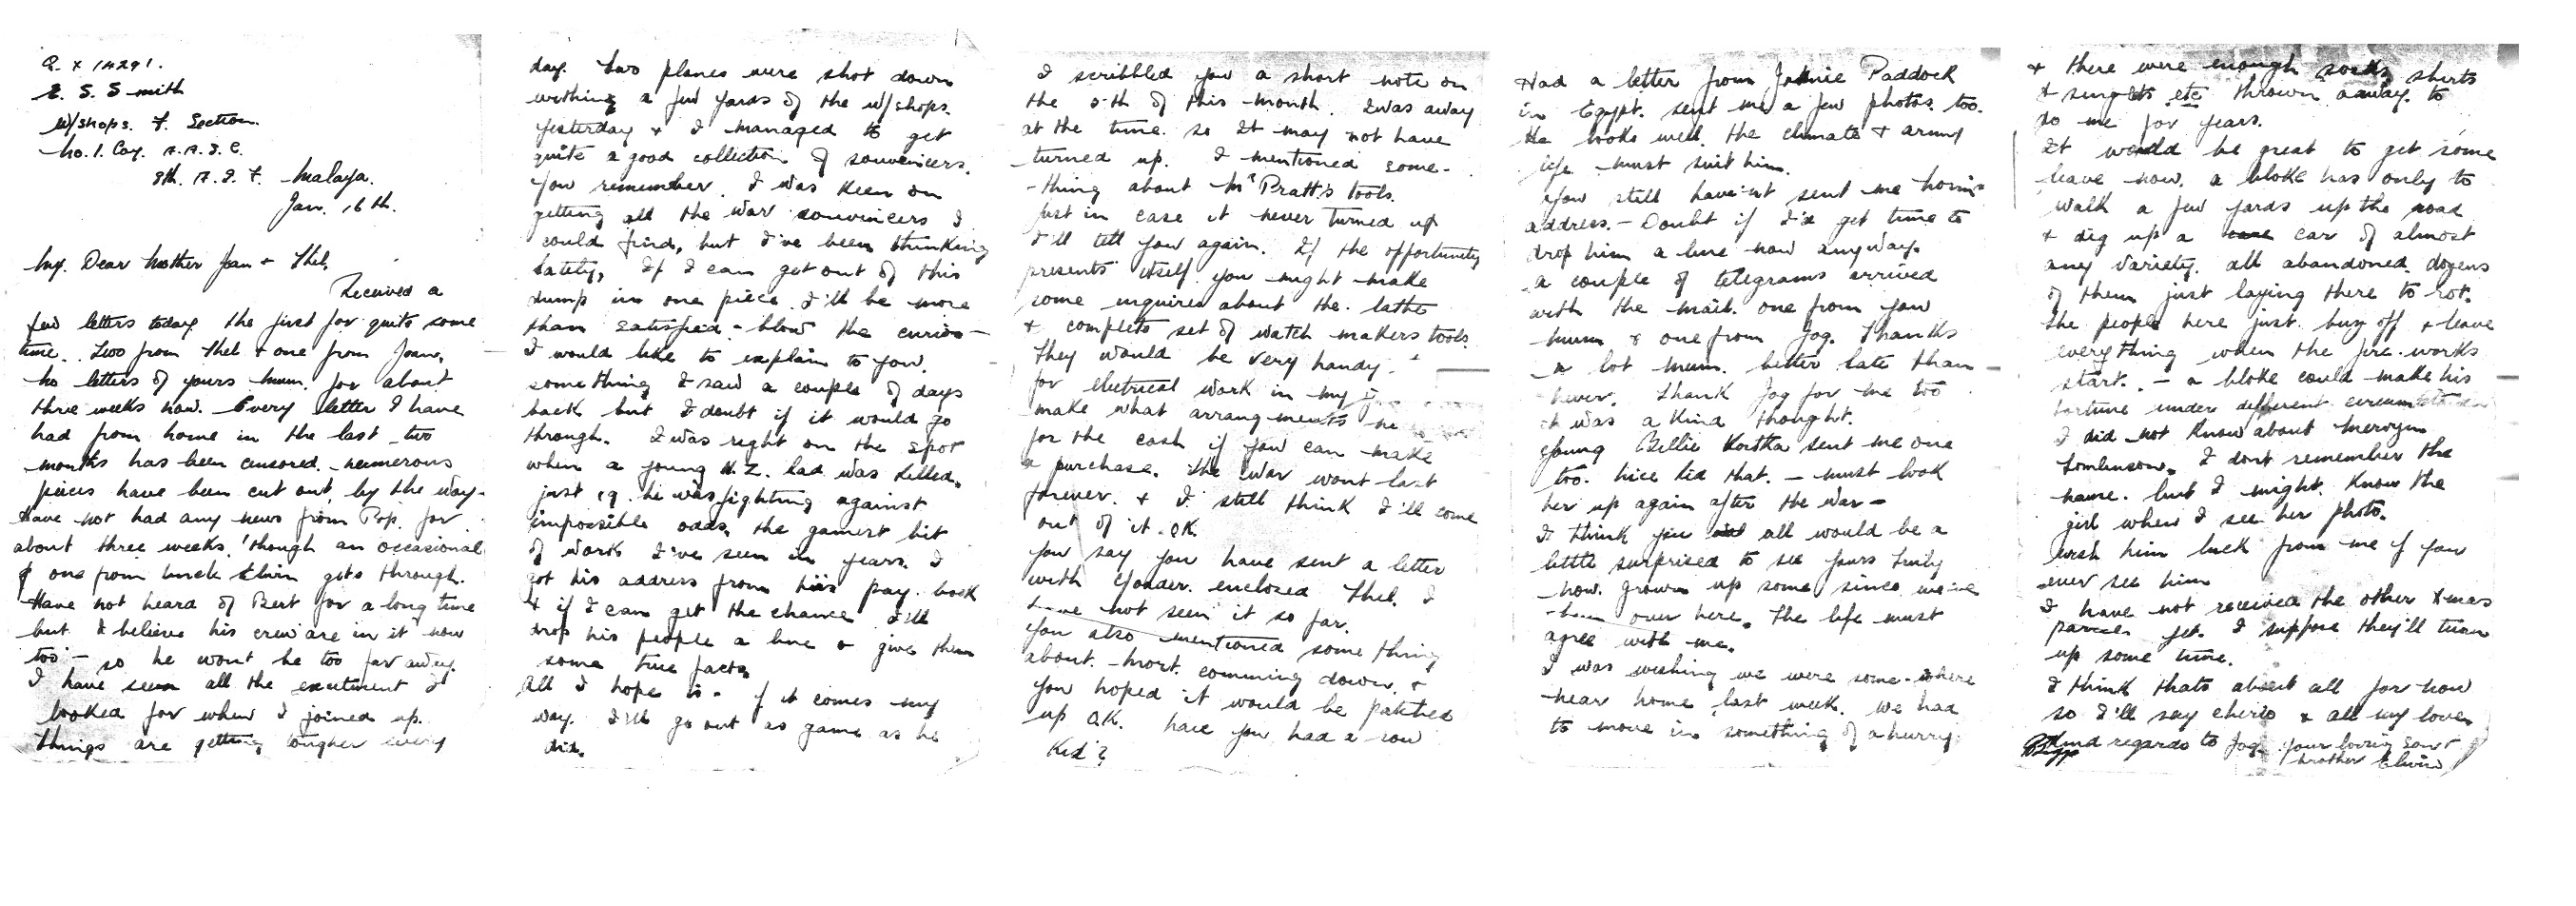 Q. X 14291.
E. S. Smith
W/shops. F. Section.
No. 1. Coy. A.A.S.C.
8th. A.I.F. Malaya.
Jan. 16th.
My. Dear Mother Joan + Thel,
Received a
few letters today the first for quite some
time. Two from Thel + one from Joan,
No letters of yours Mum. for about
three weeks now. Every letter I have
had from home in the last two
months has been censored. numerous
pieces have been cut out, by the way.
Have not had any news from Pop. for
about three weeks, 'though an occasional
one from Uncle Elvin gets through.
Have not heard of Bert for a long time
but I believe his crew are in it now
too - so he wont be too far away.
I have seen all the excitment I
looked for when I joined up.
Things are getting tougher every
day. Two planes were shot down
withing a few yards of the w/shops.
yesterday + I managed to get
quite a good collection of souveneers.
You remember. I was keen on
getting all the war souvineers I
could find, but I've been thinking
lately, If I can get out of this
dump in one piece I'll be more
than satisfied - blow the curios -
I would like to explain to you.
something I saw a couple of days
back but I doubt if it would go
through. I was right on the spot
when a young N.Z. lad was killed.
just 19. he was fighting against
impossible odds, the gamest bit
of work I've seen in years. I
got his address from his pay. book
+ if I can get the chance I'll
drop his people a line + give them
some true facts.
All I hope is - if it comes my
way. I'll go out as game as he
did.
I scribbled you a short note on
the 5th of this month. I was away
at the time. so It may not have
turned up. I mentioned some-
-thing about Mr Pratt's tools.
Just in case it never turned up
I'll tell you again. If the opportunity
presents itself you might make
some inquires about the. lathe
+ complete set of watch makers tools.
They would be very handy.
for electrical work in my
make what arrangments
for the cash if you can make
a purchase. The war wont last
forever. + I still think I'll come
out of it. OK.
You say you have sent a letter
with enclosed Thel. I
have not seen it so far.
You also mentioned some thing
about. Mort. comming down. +
you hoped it would be patched
up OK. have you had a row
Kid?
Had a letter from Johnie Paddock
in Egypt. sent me a few photos too.
He looks well. the climate + army
life must suit him.
You still have'nt sent me
address. - Doubt if I'd get time to
drop him a line now anyway.
A couple of telegrams arrived
with the mail. one from you
Mum + one from Jog. Thanks
a lot Mum. better late than -
never. Thank Jog for me too
it was a kind thought.
Young Billie sent me one
too. nice kid that. - must look
her up again after the war -
I think you all would be a
little surprised to see yours truly
now. grown up some since we've
been over here. The life must
agree with me.
I was wishing we were some-where
near home last week. we had
to move in something of a hurry
+ there were enough socks shirts
+ singlets etc thrown away. to
do me for years.
It would be great to get some
leave now. a bloke has only to
walk a few yards up the road
+ dig up a car of almost
any variety. all abandoned. dozens
of them just laying there to rot.
The people here just. buzz off + leave
everything when the fire-works
start. - a bloke could make his
fortune under different
I did not know about Mervyn
Tomlinson. I dont remember the
name. but I might. Know the
girl when I see her photo.
Wish him luck from me if you
ever see him
I have not received the other Xmas
parcels yet. I suppose they'll turn
up some time.
I think thats about all for now
so I'll say cherio + all my love
Kind regards to Jog. Your loving Son +
brother Elvin